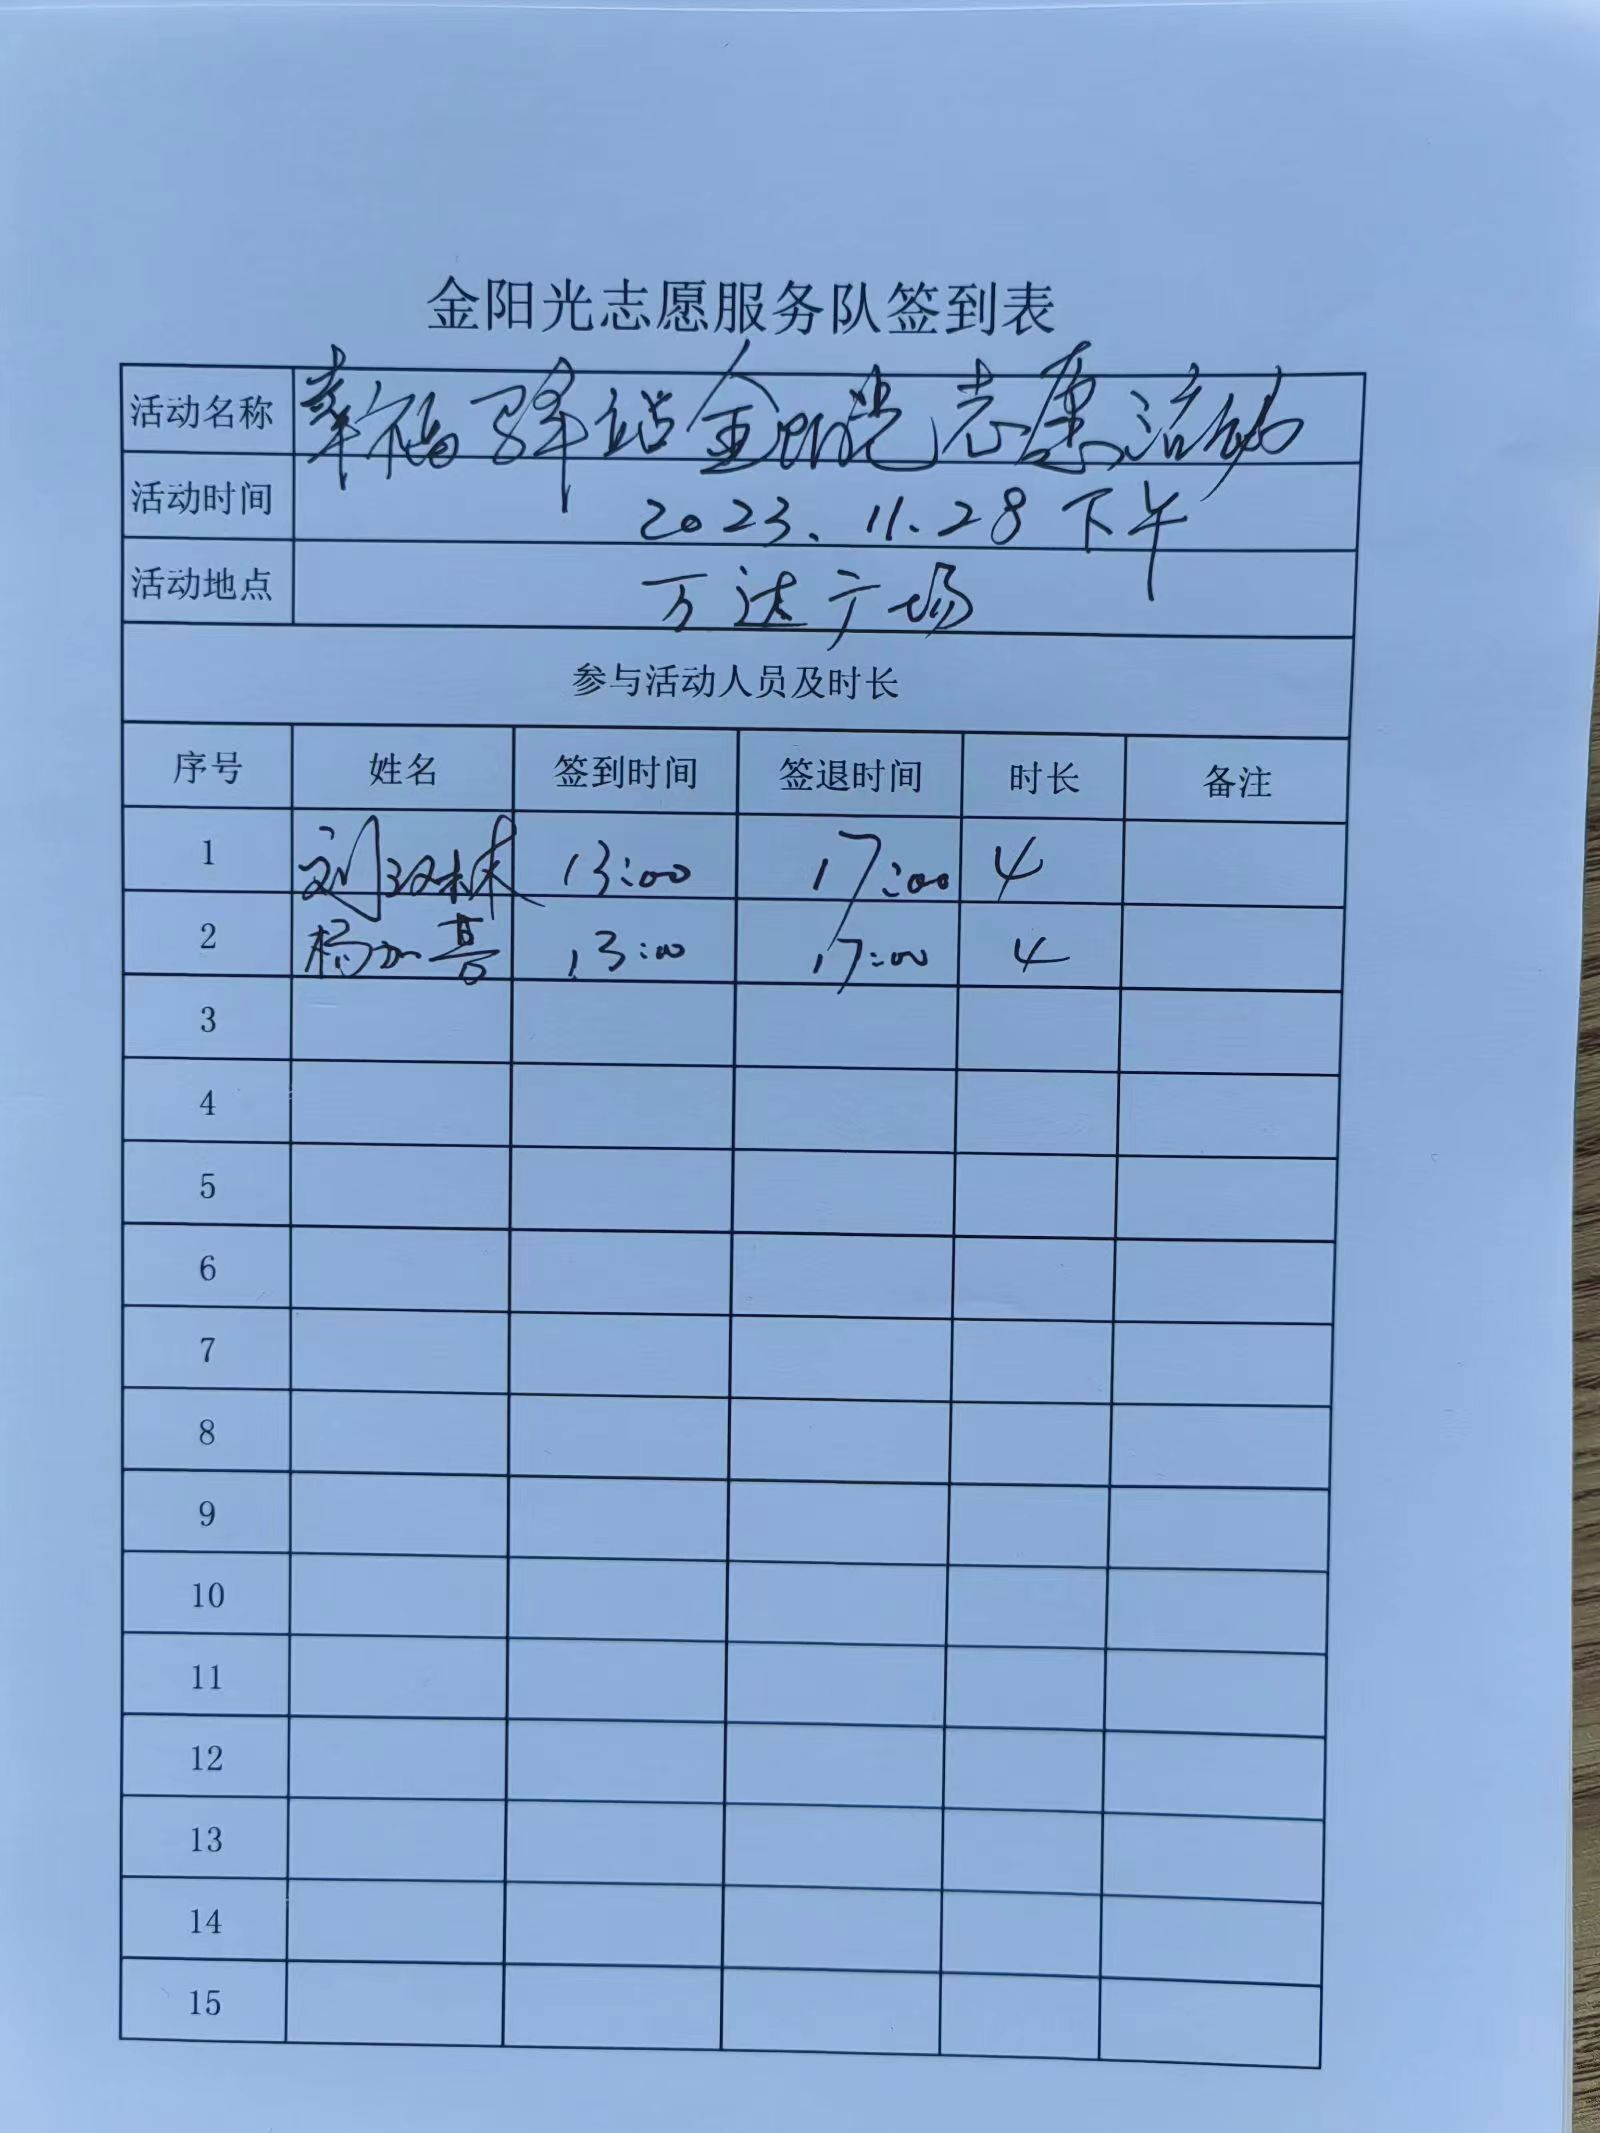 金阳光志愿服务队签到表
活动名称 幸福驿站金阳光志愿活动
活动时间 2023.11.28下午
活动地点 万达广场
参与活动人员及时长
序号 姓名 签到时间 签退时间 时长 备注
1 刘汉林 13:00 17:00 4
2 杨加喜 13:00 17:00 4
3
4
5
6
7
8
9
10
11
12
13
14
15